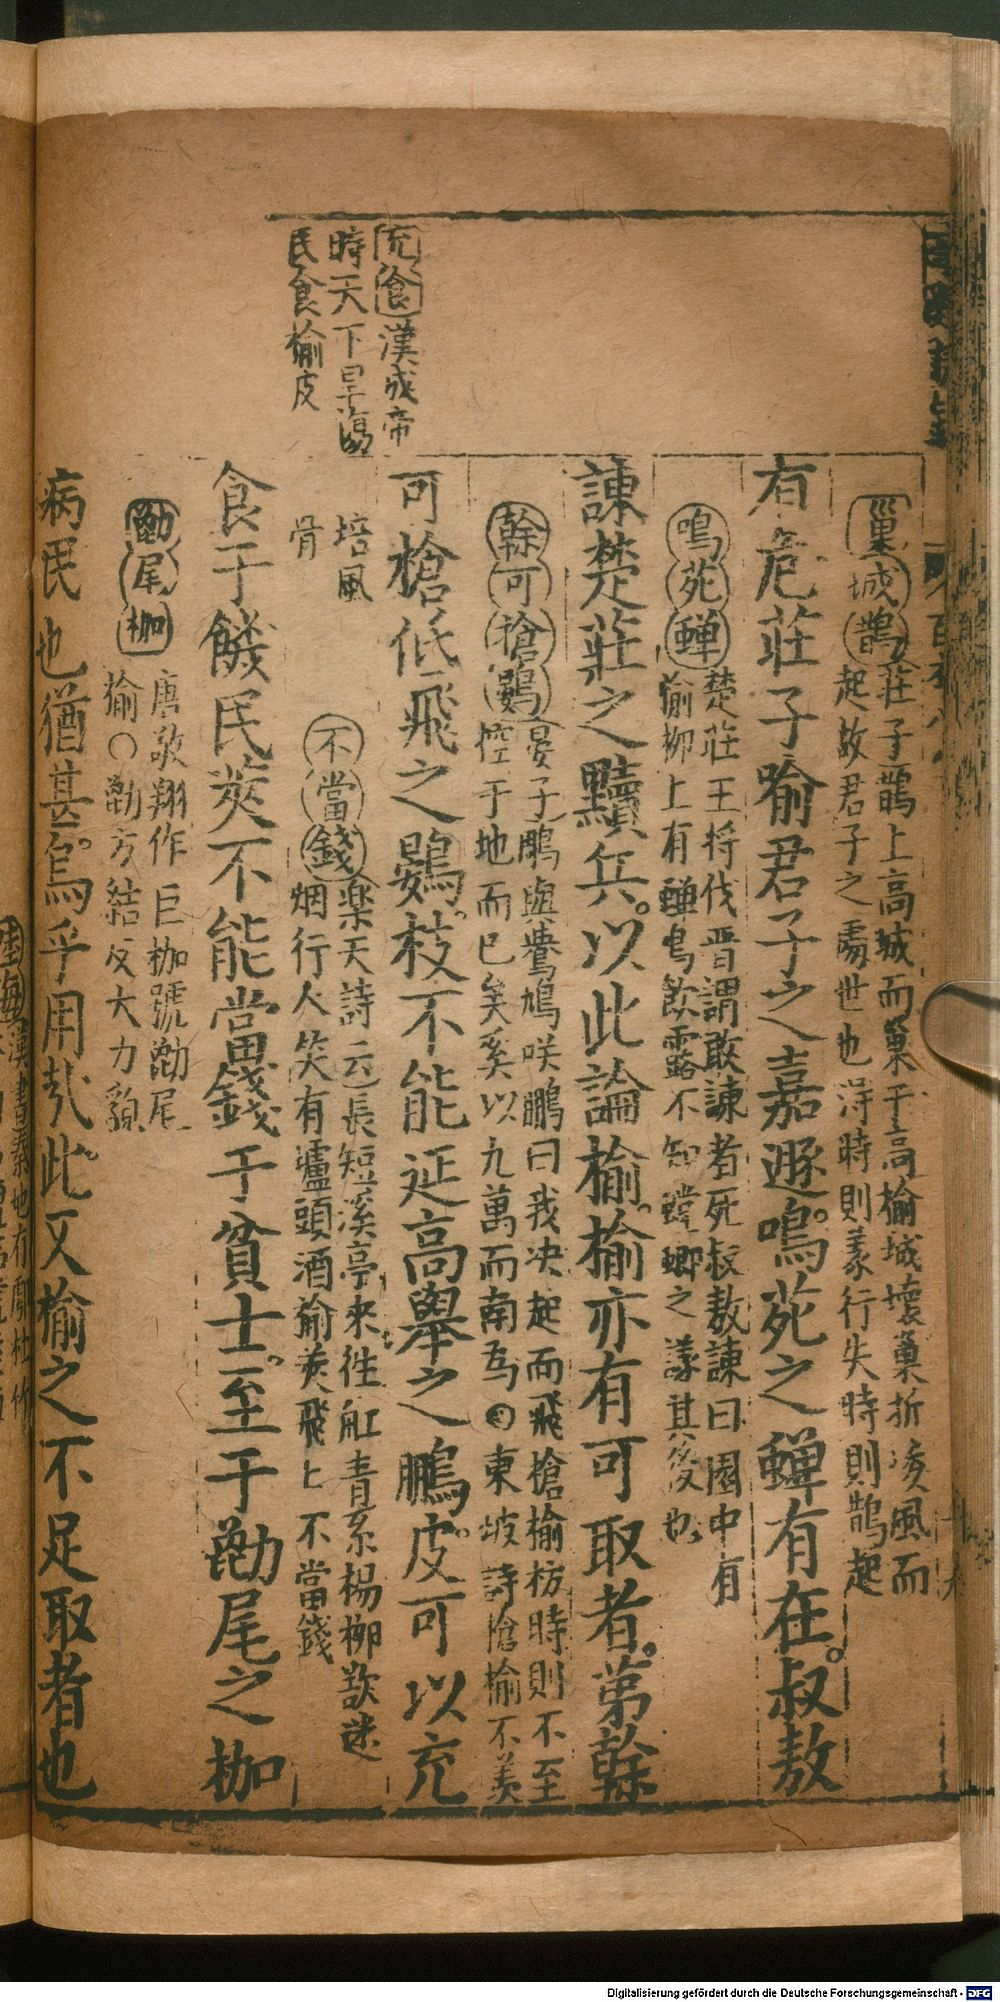 充食漢成帝
時天下旱蕩
民食榆皮
巢城鵲莊子鵲上高城而巢于高榆城壞巢折凌風而
起故君子之處世也得時則義行失時則鵲起
有危莊子喻君子之嘉遯。鳴苑之蟬有在。叔敖
鳴苑蟬楚莊王将伐晋謂敢諫者死叔敖諫曰園中有
榆柳上有蟬鳴飲露不知螳螂之議其後也
諫楚莊之黷兵。以此論榆。榆亦有可取者。第榦
榦可搶鷃晏子鵰與鷽鳩咲鵬曰我决起而飛槍榆枋時則不至
控于地而已矣奚以九萬而南爲○東坡詩槍榆不羡
可槍低飛之鷃。枝不能延高舉之鵬。皮可以充
培風
骨
不當錢楽天詩云長短溪亭來徃舡青糸楊柳欲迷
烟行人笑有壚頭酒榆莢飛上不當錢
食于饑民莢不能當錢于貧士。至于勫尾之枷
勫尾枷唐敬翔作巨枷號勫尾
榆○勫方結反大力貌
病民也猶甚。烏乎用㢤此。又榆之不足取者也
Digitalisierung gefördert durch die Deutsche Forschungsgemeinschaft - DFG